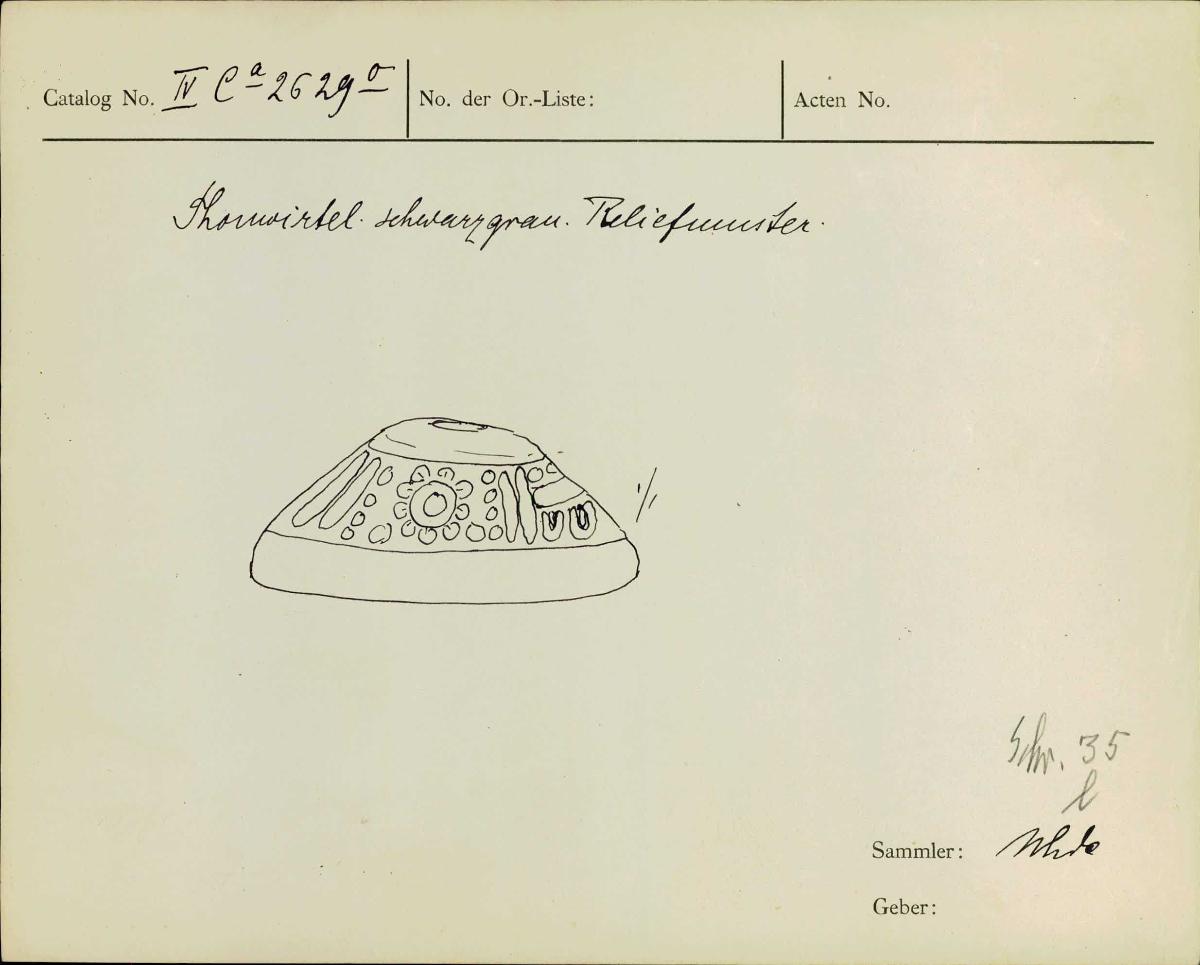 Catalog No. IV Ca 2629 a No. der Or.-Liste: Acten No.
Thonwirtel. schwarzgrau. Reliefmuster.
1/1
Schr. 35
l
Sammler: Uhde
Geber: